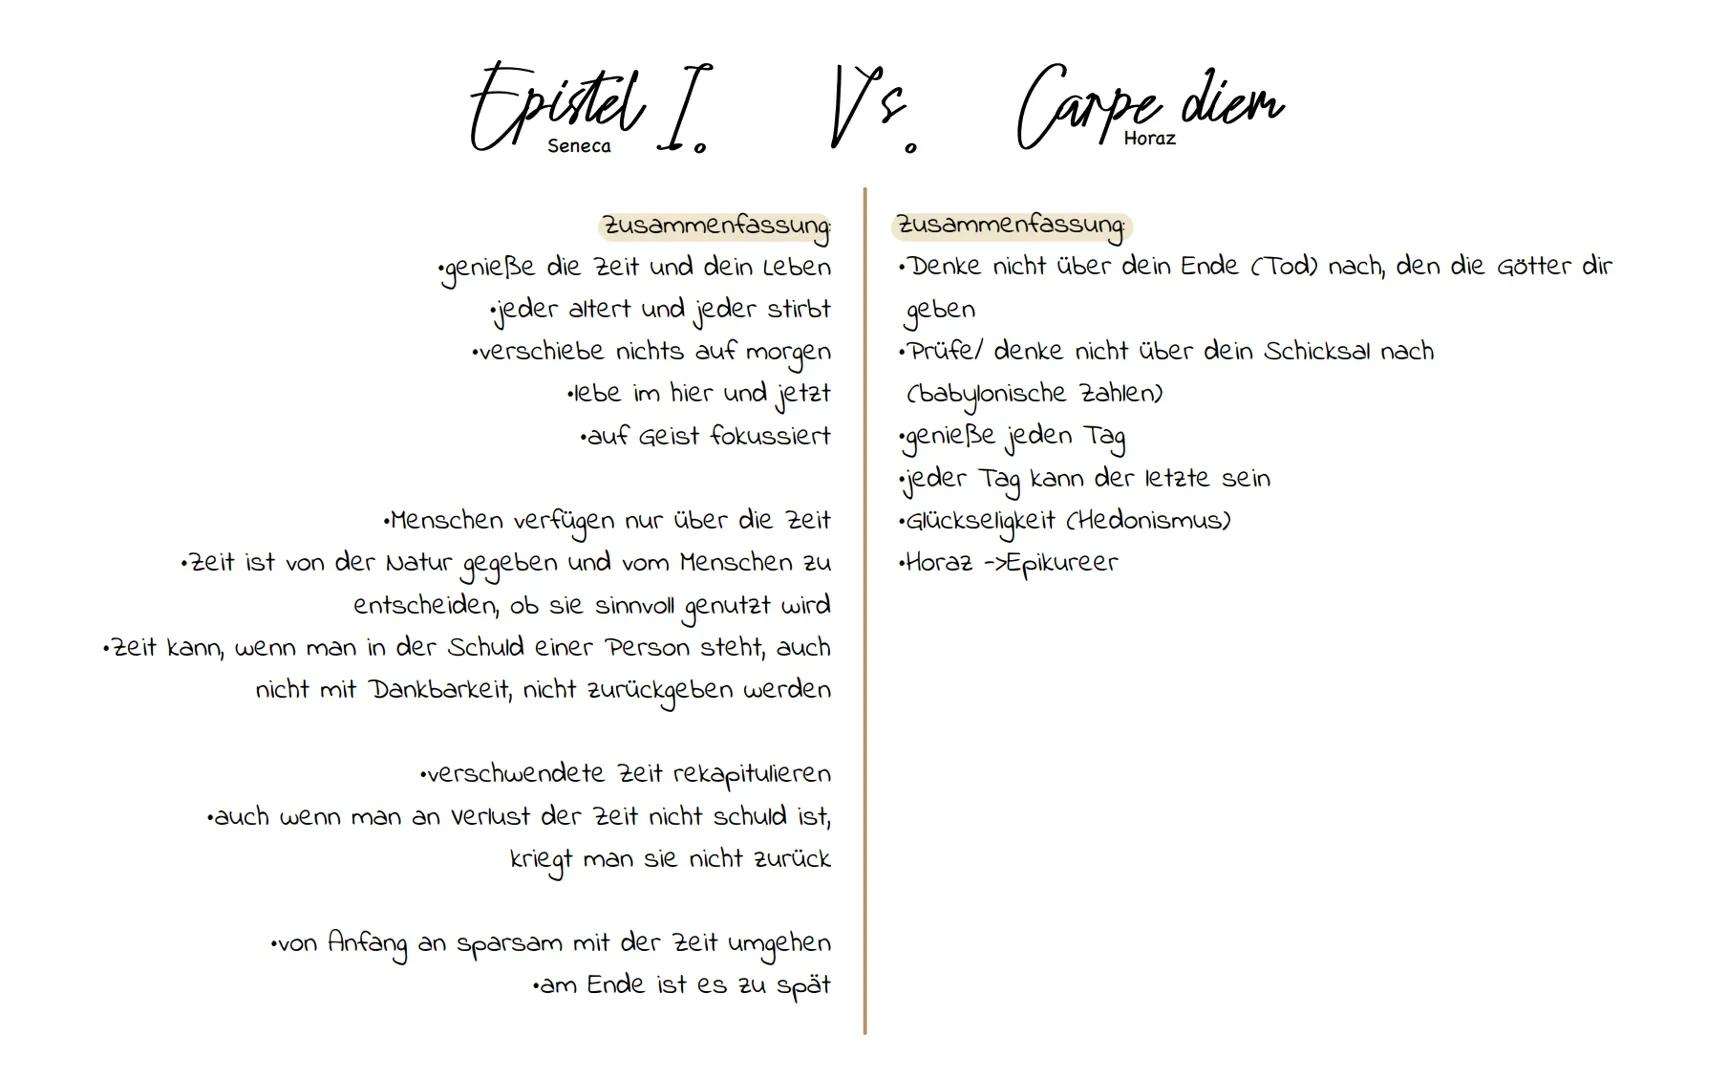 Epistel I. Vs. Carpe diem
Seneca
Horaz
Zusammenfassung:
•genieße die Zeit und dein Leben
•jeder altert und jeder stirbt
•verschiebe nichts auf morgen
•lebe im hier und jetzt
•auf Geist fokussiert
•Menschen verfügen nur über die Zeit
•Zeit ist von der Natur gegeben und vom Menschen zu
entscheiden, ob sie sinnvoll genutzt wird
•Zeit kann, wenn man in der Schuld einer Person steht, auch
nicht mit Dankbarkeit, nicht zurückgeben werden
•verschwendete Zeit rekapitulieren
•auch wenn man an Verlust der Zeit nicht schuld ist,
kriegt man sie nicht zurück
•von Anfang an sparsam mit der Zeit umgehen
•am Ende ist es zu spät
Zusammenfassung:
•Denke nicht über dein Ende (Tod) nach, den die Götter dir
geben
•Prüfe/ denke nicht über dein Schicksal nach
(babylonische Zahlen)
•genieße jeden Tag
•jeder Tag kann der letzte sein
•Glückseligkeit (Hedonismus)
•Horaz ->Epikureer